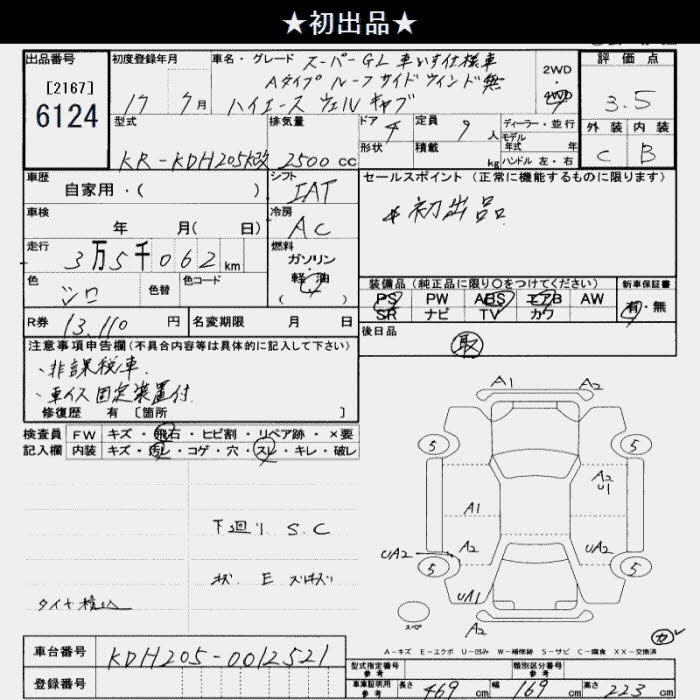 ★初出品★
出品番号
[2167]
6124
初度登録年月
17 7月
車名・グレード スーパーGL 車いす仕様車
Aタイプ ルーフサイドウィンド無
ハイエース ウェルキャブ
2WD
4WD
評価点
3.5
外装 内装
C B
型式
KR-KDH205K改
排気量
2500cc
ドア 4
形状
定員 9人
積載 kg
ディーラー・並行
モデル
年式 年
ハンドル 左・右
車歴
自家用・( )
シフト
IAT
セールスポイント (正常に機能するものに限ります)
*初出品
車検
年 月( 日)
冷房
AC
走行
3万5千062km
燃料
ガソリン
・
軽油
( )
色
シロ
色替
色コード
装備品 (純正品に限り○をつけてください)
PS PW ABS エアB AW
SR ナビ TV カワ
新車保証書
有・無
R券 13,110円
名変期限 月 日
後日品
取
注意事項申告欄(不具合内容等は具体的に記入して下さい)
・非課税車
・車イス固定装置付
修復歴 有 〔箇所 〕
検査員 FW キズ・飛石・ヒビ割・リペア跡・×要
記入欄 内装 キズ・汚レ・コゲ・穴・スレ・キレ・破レ
A1 A2
5 5
A2
U1
A1
UA2 A2 UA2
5 5
UA1
スペア A2
下廻り S.C
状. E
タイヤ積込
カ
A-キズ E-エクボ U-凹み W-補修跡 S-サビ C-腐食 XX-交換済
車台番号 KDH205-0012521
登録番号
型式指定番号
参考
類別区分番号
参考
車庫証明用
参考
長さ 469cm 幅 169cm 高さ 223cm